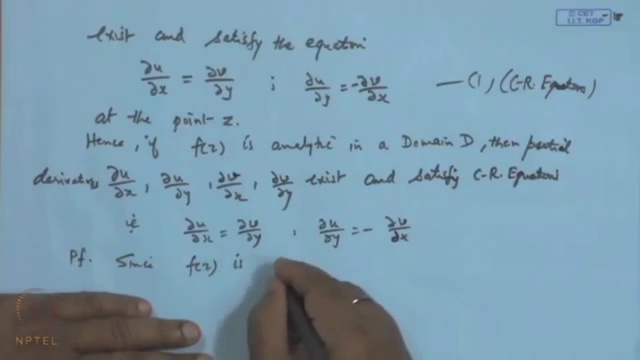 © CET
I.I.T. KGP
exist and satisfy the equation
∂u/∂x = ∂v/∂y ; ∂u/∂y = -∂v/∂x — (1) (C-R. Equations)
at the point z.
Hence, if f(z) is analytic in a Domain D, then partial
derivatives ∂u/∂x, ∂u/∂y, ∂v/∂x, ∂v/∂y exist and satisfy C-R. Equations
ie ∂u/∂x = ∂v/∂y , ∂u/∂y = - ∂v/∂x
Pf. Since f(z) is
NPTEL